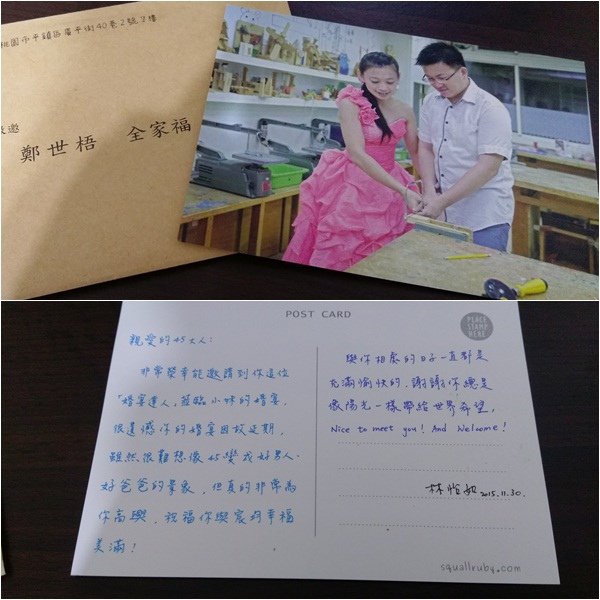 桃園市平鎮區廣平街40巷2號3樓
邀
鄭世梧 全家福
POST CARD
PLACE
STAMP
HERE
親愛的45大人:
非常榮幸能邀請到你這位
「婚宴達人」蒞臨小妹的婚宴,
很遺憾你的婚宴因故延期,
雖然很難想像45變成好男人、
好爸爸的景象,但真的非常為
你高興,祝福你與宸均幸福
美滿!
與你相處的日子一直都是
充滿愉快的,謝謝你總是
像陽光一樣帶給世界希望,
Nice to meet you! And Welcome!
林怡如 2015.11.30.
squallruby.com